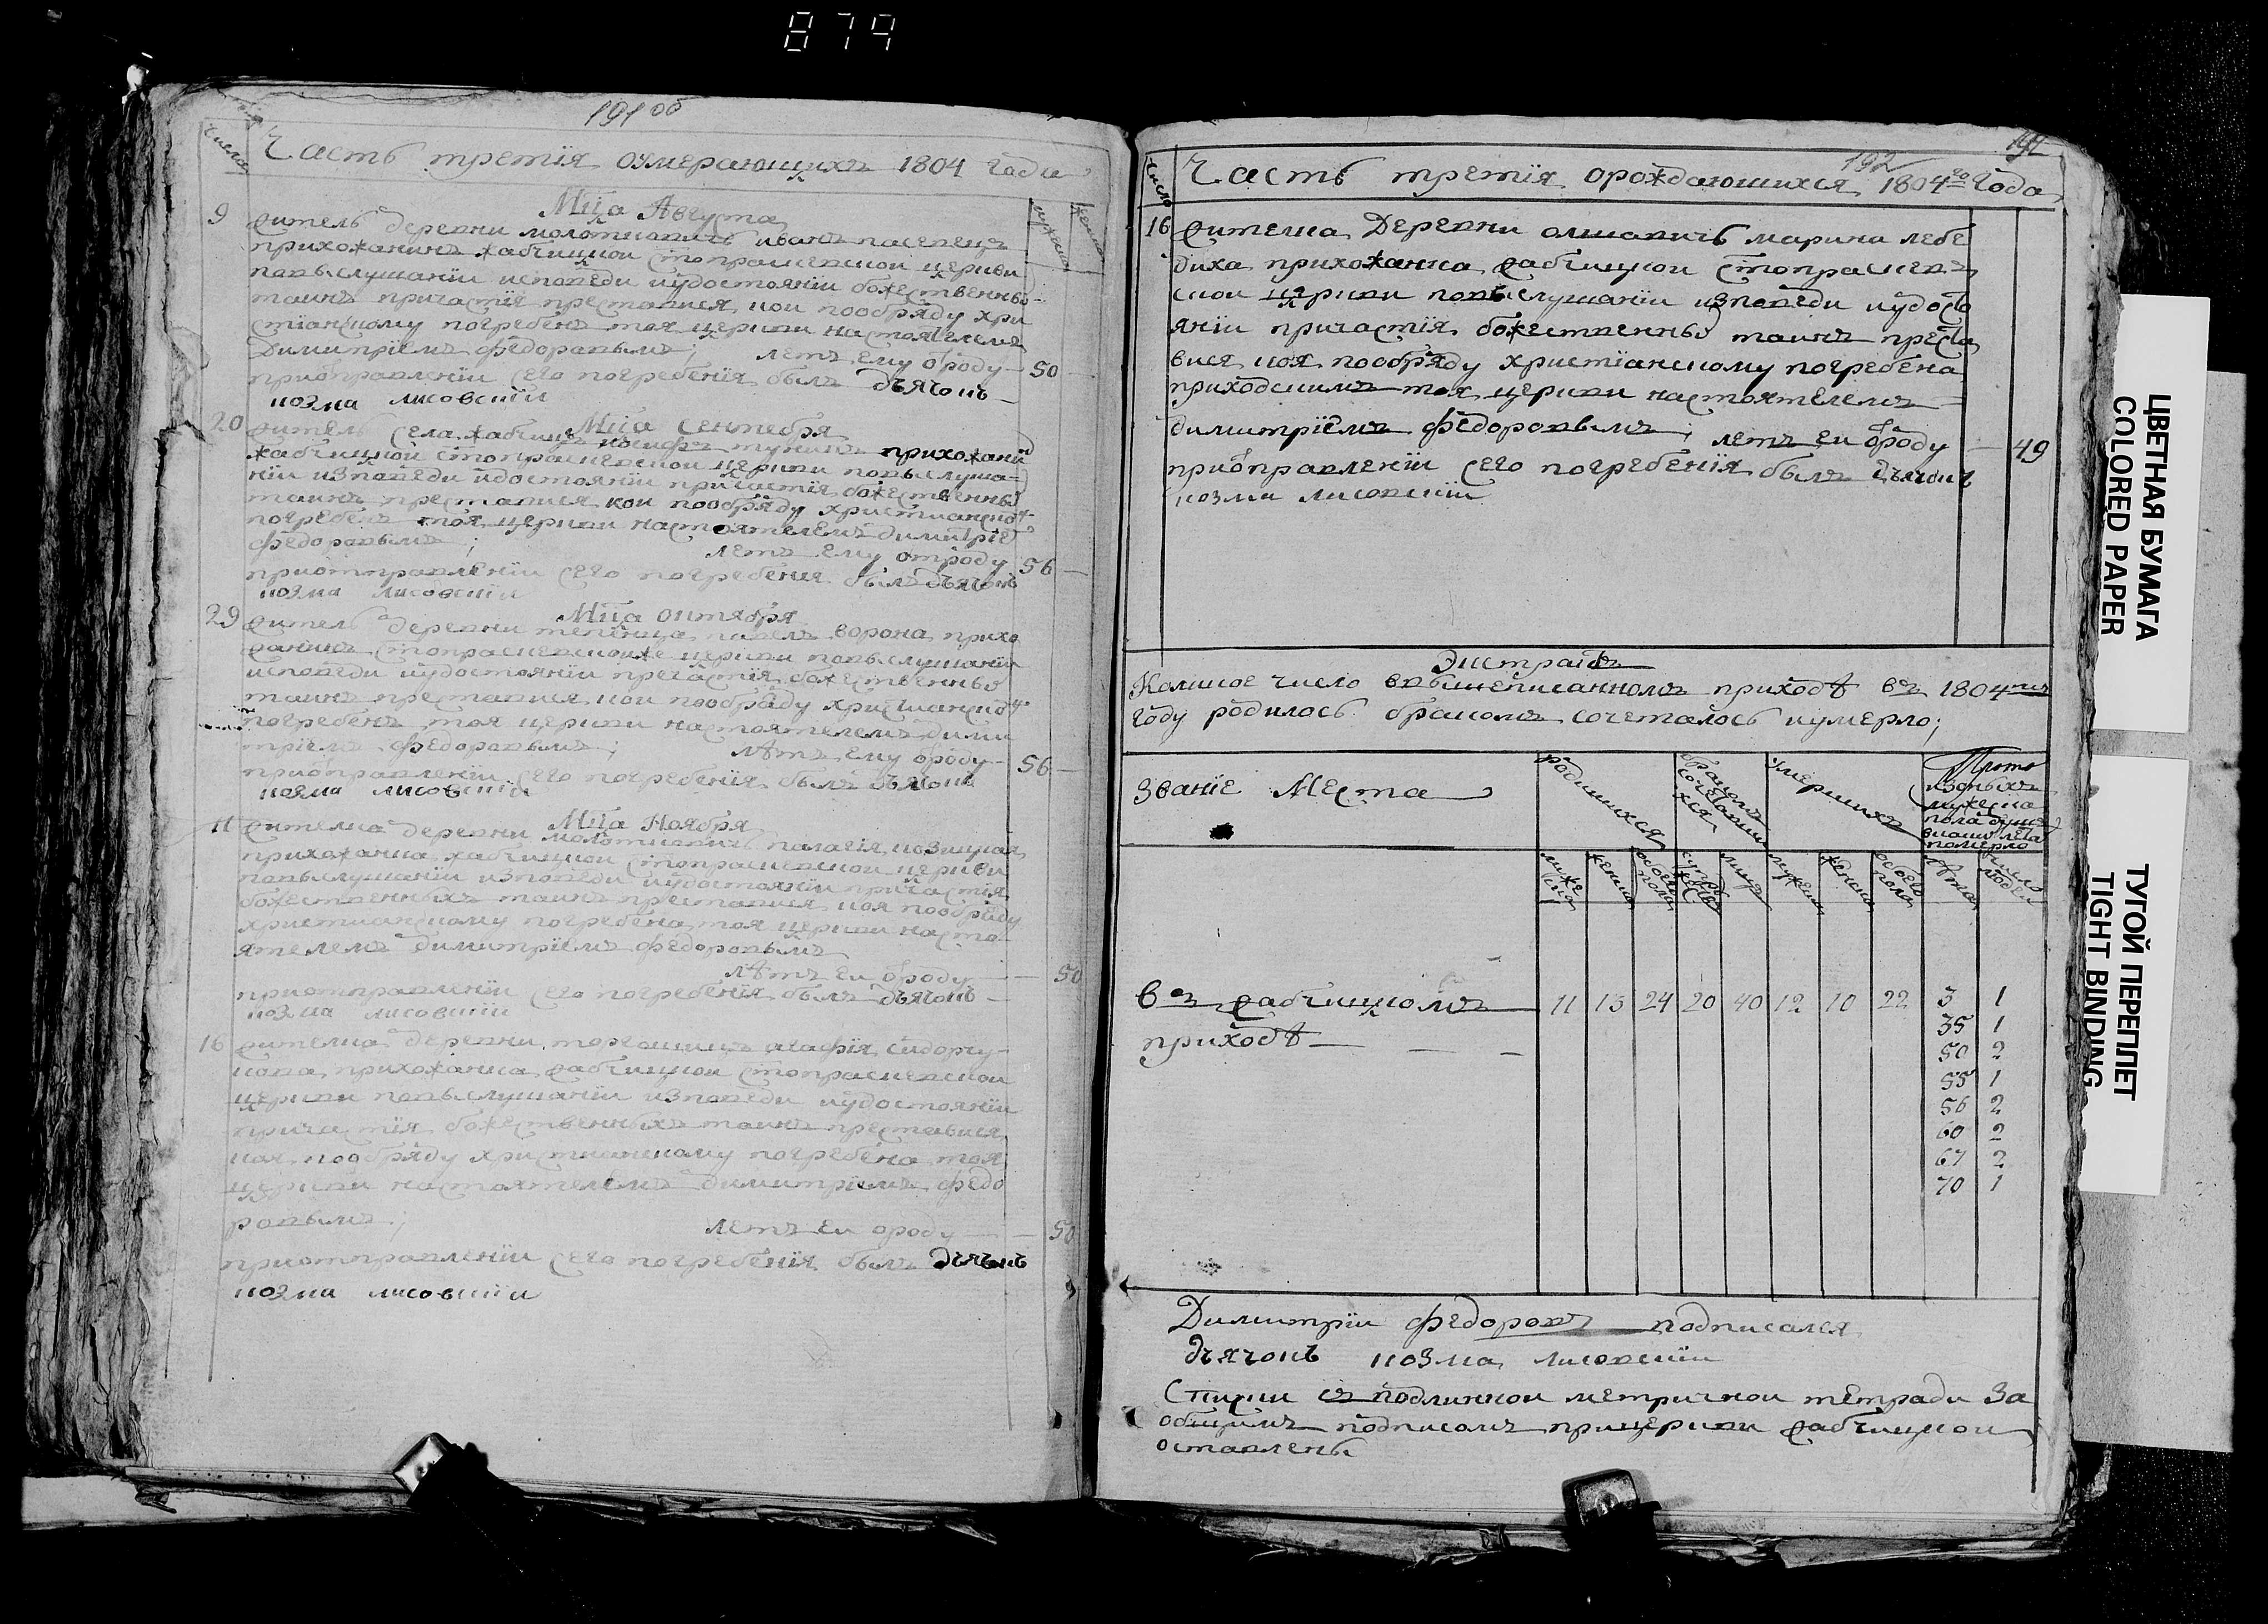 879
191 об
числа
Часть третїя оумерающихъ 1804 года
мужеска
женска
Мца Августа
9 житель деревни молотковичъ иванъ пасевецъ
прихожанинъ хабчицкой спопраженской церкви
повыслушанїи исповеди иудостоянїи божественны
таинъ причастїя преставися кои пообряду хри
стїанскому погребенъ тоя церкви настоятелемъ
Димитрїемъ федоровымъ; летъ ему ѿроду 50
приѿправленїи сего погребенїя былъ дьячокъ
козма лисовскїи
Мца Сентебря
20 житель села хабчицъ прихожани
хабчицкой церкви повыслуша
нїи изповеди идостоянїи причастїя божественны
таинъ преставися кои пообряду христианско
погребенъ тоя церкви настоятелемъ димитрїе
федоровымъ; летъ ему отроду 56
приотправленїи сего погребенїя былъ дьячокъ
козма лисовскїи
Мца октября
29 житель деревни тепенца павелъ ворона прихо
жанинъ церкви повыслушанїи
исповеди иудостоянїи причастїя божественны
таинъ преставися кои пообряду христианско
погребенъ тоя церкви настоятелемъ дими
трїемъ федоровымъ; лѣтъ ему ѿроду 56
приѿправленїи сего погребенїя былъ дьячокъ
козма лисовскїи
Мца Ноября
11 жителка деревни молотковичъ палагїя козицкая
прихожанка хабчицкой церкви
повыслушанїи изповеди иудостоянїи причастїя
божественныхъ таинъ преставися коя пообряду
христианскому погребена тоя церкви насто
ятелемъ димитрїемъ федоровымъ
лѣтъ еи ѿроду 50
приотправленїи сего погребенїя былъ дьячокъ
козма лисовскїи
16 жителка деревни агафїя сидорчу
кова прихожанка хабчицкой
церкви повыслушанїи изповеди иудостоянїи
причастїя божественныхъ таинъ преставися
коя пообряду христианскому погребена тоя
церкви настоятелемъ димитрїемъ федо
ровымъ; летъ еи ороду 50
приотправленїи сего погребенїя былъ дьячокъ
козма лисовскїи
192
192
число
Часть третїя ораждающихся 1804го года
16 жителка Деревни олшаничъ марина лебе
диха прихожанка хабчицкой
ской церкви повыслушанїи изповеди иудосто
янїи причастїя божественны таинъ преста
вися коя пообряду христїанскому погребена
приходскимъ тоя церкви настоятелемъ
димитрїемъ федоровымъ; летъ еи ѿроду 49
приѿправленїи сего погребенїя былъ дьячокъ
козма лисовскїи
Экстрактъ
Коликое число ввышеписанномъ приходѣ въ 1804мъ
году родилось бракомъ сочеталось иумерло;
Званїе Места
родившихся
бракомъ сочетавшихся
умершихъ
Прото
мужеска
пола
померло
мужеска
женска
обоего пола
супружествъ
лицъ
мужеска
женска
обоего пола
лѣта
число людей
Въ хабчицкомъ 11 13 24 20 40 12 10 22 3 1
приходѣ 35 1
50 2
55 1
56 2
60 2
67 2
70 1
Димитрїи федоровъ подписался
дьячокъ козма лисовскїи
Списки съ подлинной метричной тетради за
общимъ подписомъ прицеркви хабчицкой
оставлены
ЦВЕТНАЯ БУМАГА
COLORED PAPER
ТУГОЙ ПЕРЕПЛЕТ
TIGHT BINDING